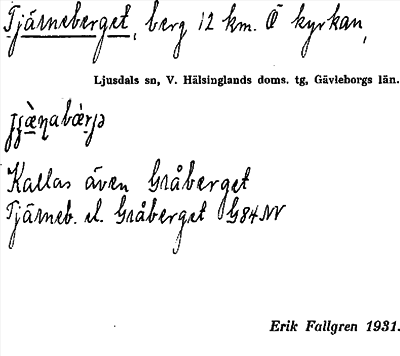 Tjärneberget, berg 12 km. Ö kyrkan,
Ljusdals sn, V. Hälsinglands doms. tg, Gävleborgs län.
Kallas även Gråberget
Tjärneb. el. Gråberget G84NV
Erik Fallgren 1931.